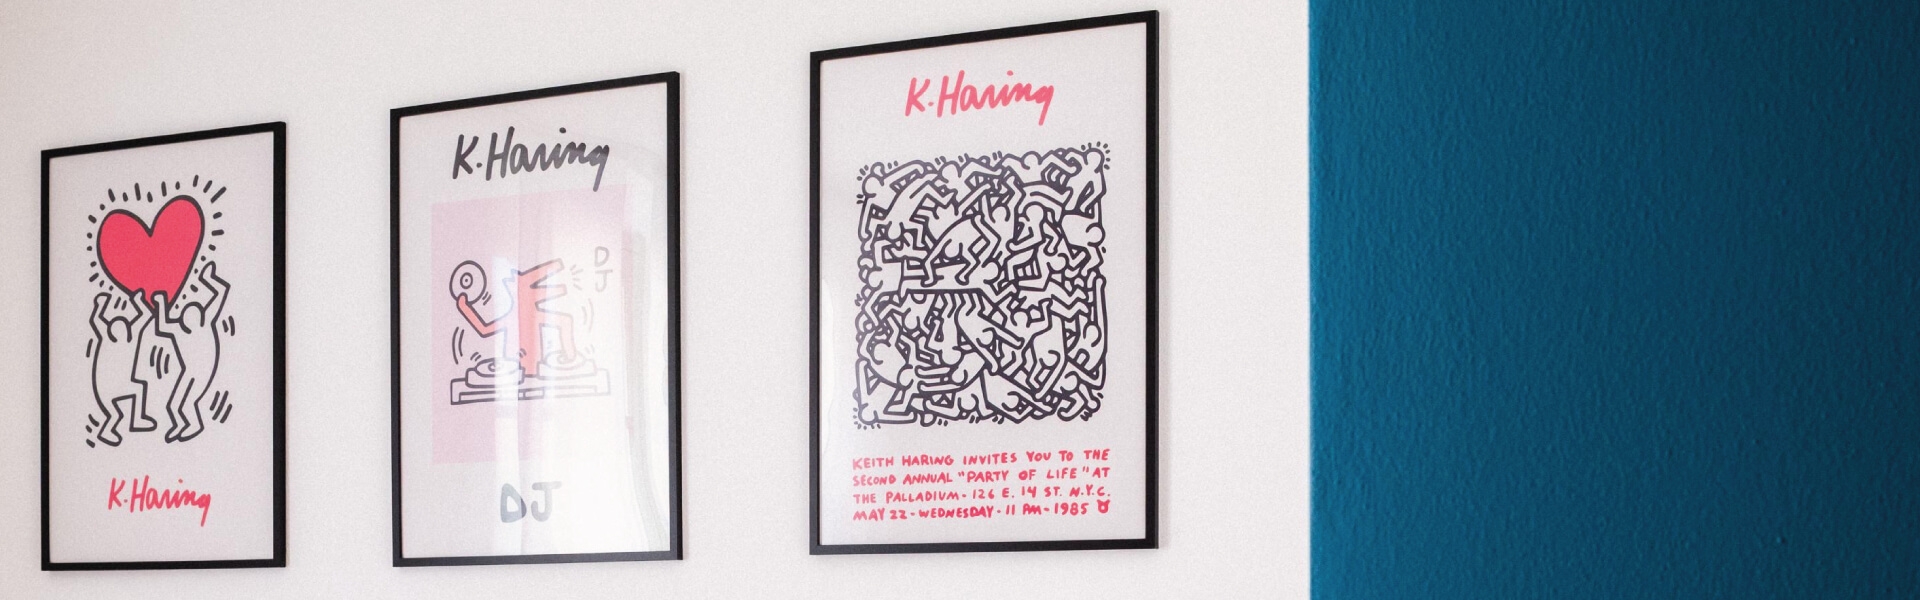 K.Haring
K.Haring
D
J
DJ
K.Haring
KEITH HARING INVITES YOU TO THE
SECOND ANNUAL "PARTY OF LIFE" AT
THE PALLADIUM - 126 E. 14 ST. N.Y.C.
MAY 22 - WEDNESDAY - 11 PM - 1985